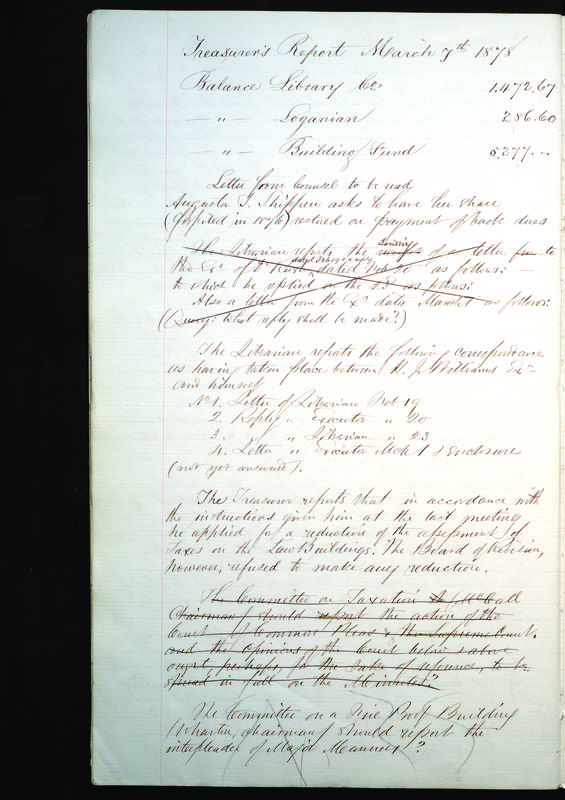 Treasurer's Report March 7th 1878
Balance Library Co. 1,472.67
— " — Loganian 286.60
— " — Building Fund 5,277.--
Letter from Counsel to be read
Augusta J. Shippen asks to have her share
(forfeited in 1876) restored on payment of back dues
The Librarian reports the sending of a letter to
the Exr of Dr Rush dated Feb 20 as follows: —
to which he replied on the 23d as follows:
Also a letter from the Exr dated March 1 as follows:
(Query: What reply shall be made?)
The Librarian reports the following correspondence
as having taken place between H. J. Williams Exr
and himself
No 1. Letter of Librarian Feb 19
2. Reply " Executor " 20
3. " " Librarian " 23
4. Letter " Executor Mch 1 & Enclosure
(not yet answered).
The Treasurer reports that in accordance with
the instructions given him at the last meeting
he applied for a reduction of the assessment of
Taxes on the Law Buildings. The Board of Revision,
however, refused to make any reduction.
The Committee on Taxation McCall
Chairman should report the action of the
Court of Common Pleas & the Supreme Court.
and the opinions of the Court below & above
ought, perhaps, for the sake of reference, to be
spread in full on the Minutes?
The Committee on a Fire Proof Building
(Wharton, chairman) should report the
interpleader of Major Manners!?